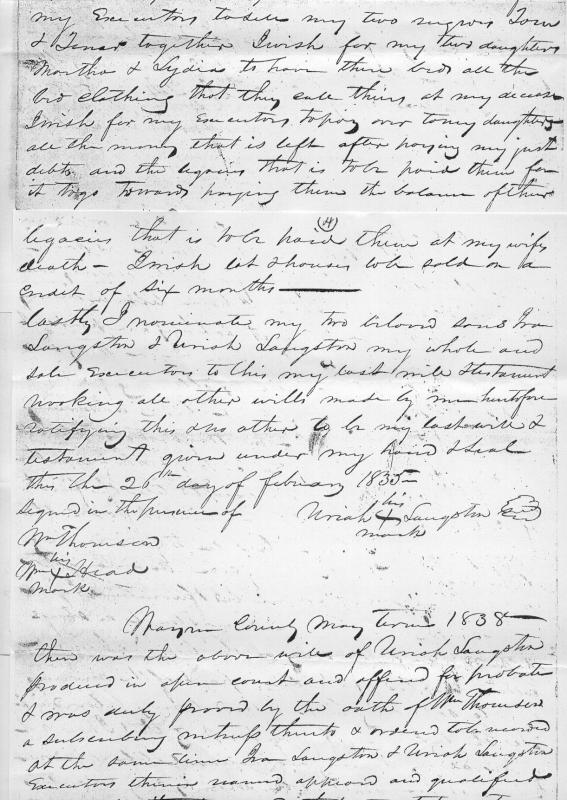 my Executors to sell my two negroes Tom
& Tener together I wish for my two daughters
Martha & Lydia to have there beds all the
bed clothing that they call theirs at my decease
I wish for my Executors to pay over to my daughters
all the money that is left after paying my just
debts and the legacies that is to be paid them for
it to go towards paying them the balance of there
(4)
legacies that is to be paid them at my wifes
death – I wish lot & houses to be sold on a
credit of six months
Lastly I nominate my two beloved sons Ira
Langston & Uriah Langston my whole and
sole Executors to this my last will & testament
revoking all other wills made by me heretofore
ratifying this & no other to be my last will &
testament given under my hand & seal
this the 26th day of february 1835
Signed in the presence of Uriah his X mark Langston Seal
Wm Thomson
Wm his X mark Head
County May term 1838
there was the above will of Uriah Langston
produced in open court and offered for probate
& was duly proved by the oath of Wm Thomson
a subscribing witness thereto & ordered to be recorded
at the same time Ira Langston & Uriah Langston
Executors therein named appeared and qualified